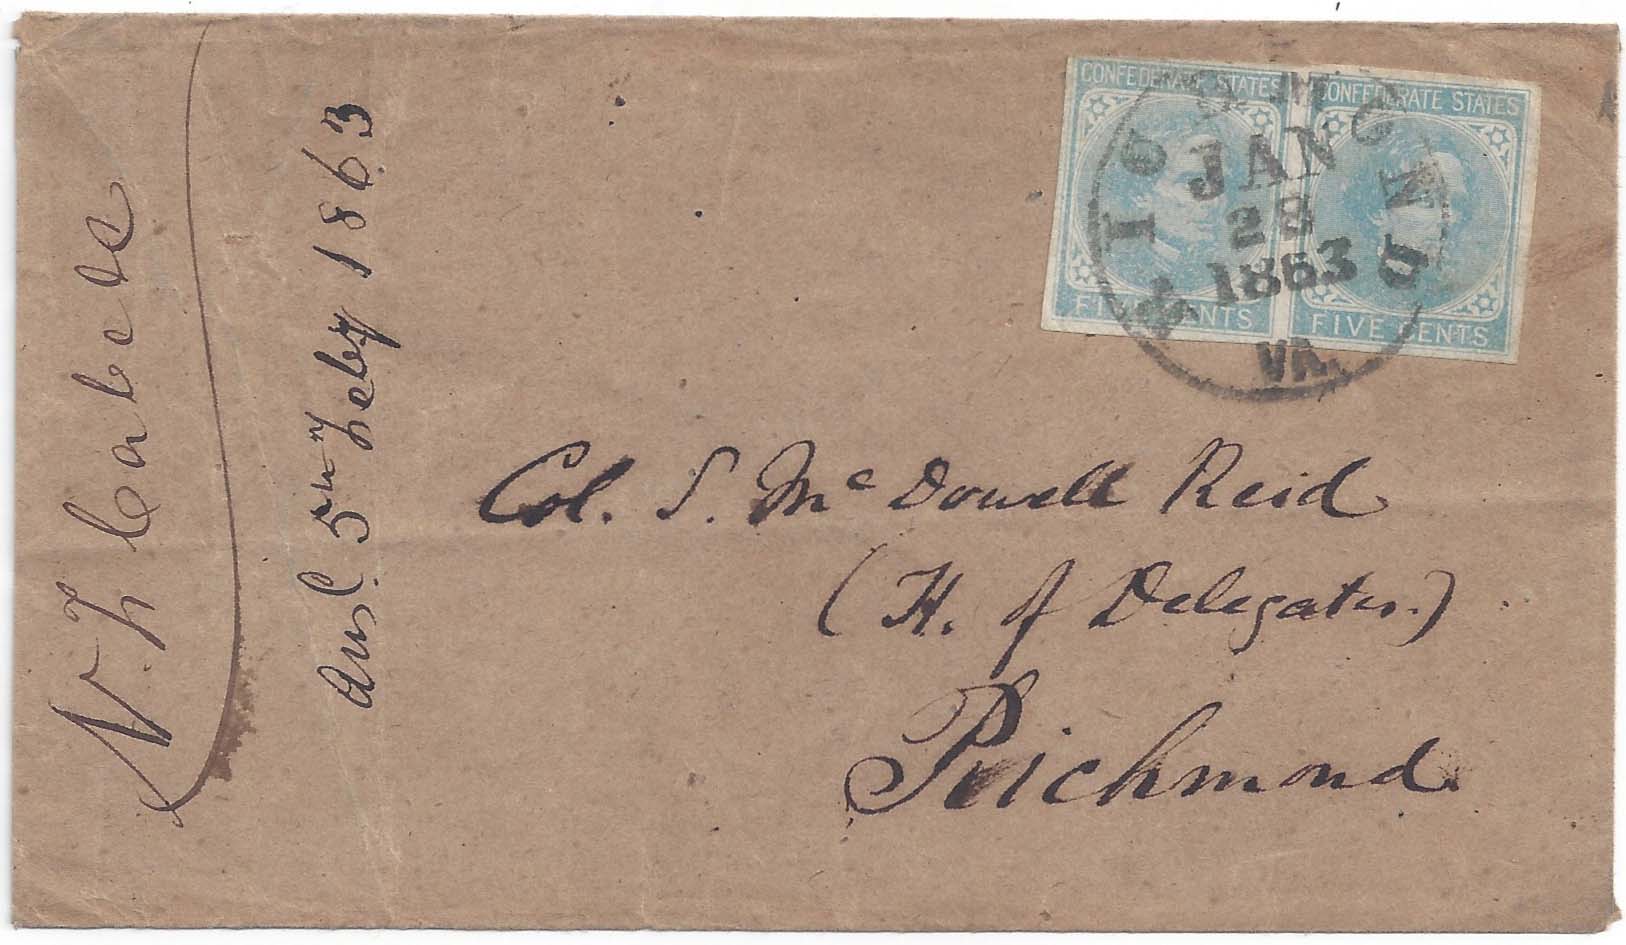 CONFEDERATE STATES
FIVE CENTS
CONFEDERATE STATES
FIVE CENTS
RICHMOND
JAN
28
1863
VA.
Col. S. McDowell Reid
(H. of Delegates.)
Richmond
Ansd. 5th Feby 1863
N. F. Cabell